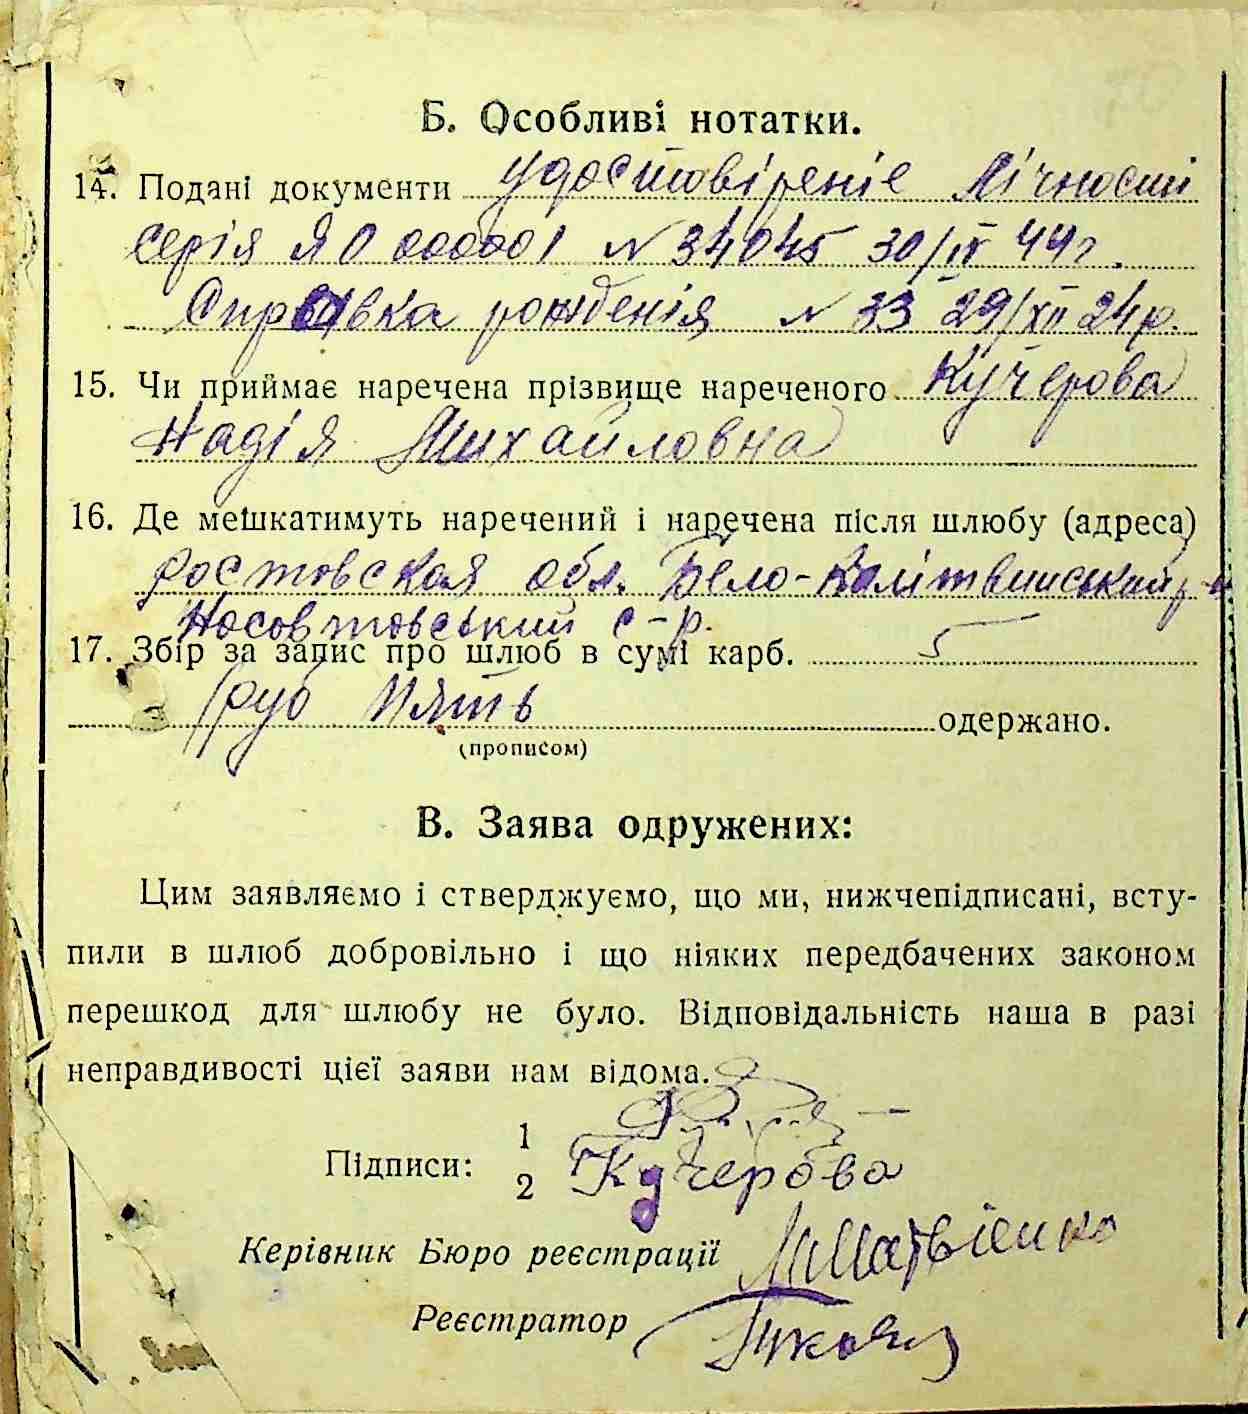 Б. Особливі нотатки.
14. Подані документи удостовіреніе Лічності
серія Я0 000001 N 34045 30/IX 44 г.
Справка рожденія N 33 29/XII 24 р.
15. Чи приймає наречена прізвище нареченого Кучерова
Надія Михайловна
16. Де мешкатимуть наречений і наречена після шлюбу (адреса)
Ростовская обл. Бело-Калітвинський р-н
с-р.
17. Збір за запис про шлюб в сумі карб. 5
руб Пять одержано.
(прописом)
В. Заява одружених:
Цим заявляємо і стверджуємо, що ми, нижчепідписані, всту-
пили в шлюб добровільно і що ніяких передбачених законом
перешкод для шлюбу не було. Відповідальність наша в разі
неправдивості цієї заяви нам відома.
1
Підписи:
2 Кучерова
Керівник Бюро реєстрації Матвієнко
Реєстратор